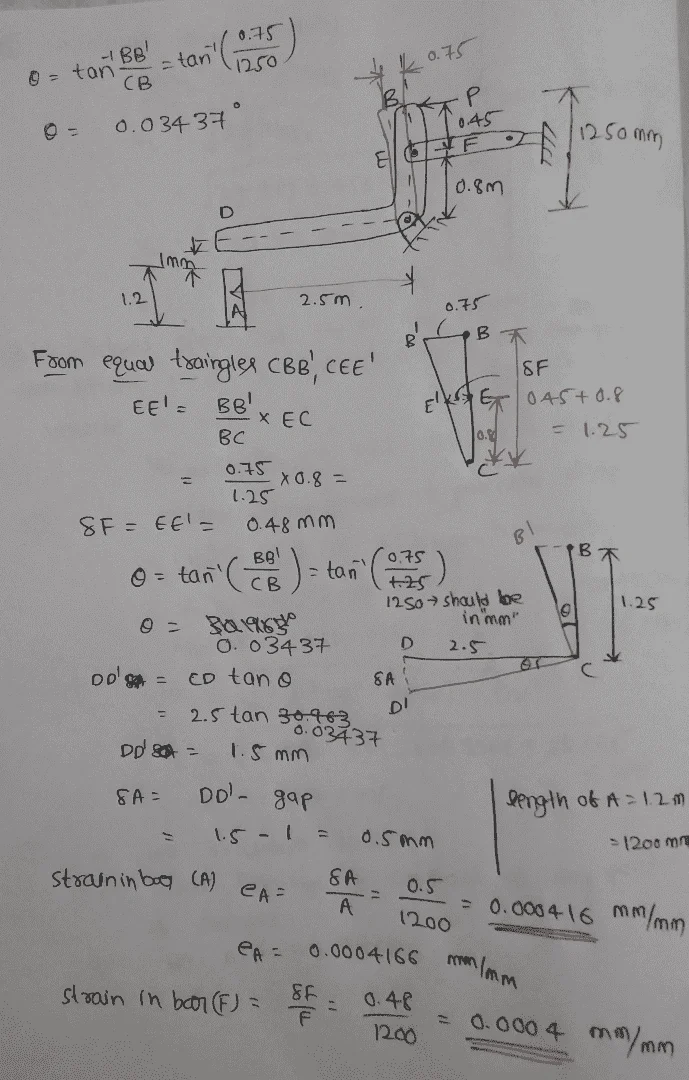 θ = tan⁻¹ BB'/CB = tan⁻¹ (0.75/1250)
θ = 0.03437°
0.75
B
P
0.45
F
E
1250 mm
0.8m
D
1mm
1.2
A
2.5m.
From equal traingles CBB', CEE'
EE' = BB'/BC × EC
= 0.75/1.25 × 0.8 =
δF = EE' = 0.48 mm
0.75
B'
B
δF
E'
E
0.45 + 0.8
= 1.25
0.8
C
θ = tan⁻¹ (BB'/CB) = tan⁻¹ (0.75/1.25)
1250 → should be
in "mm"
θ =
0.03437
B'
B
θ
1.25
D
2.5
θ
C
δA
D'
DD' = CD tan θ
= 2.5 tan 30.963
0.03437
DD' = 1.5 mm
δA = DD' - gap
= 1.5 - 1 = 0.5mm
length of A = 1.2 m
= 1200 mm
strain in bar (A) eA = δA/A = 0.5/1200 = 0.000416 mm/mm
eA = 0.0004166 mm/mm
strain in bar (F) = δF/F = 0.48/1200 = 0.0004 mm/mm